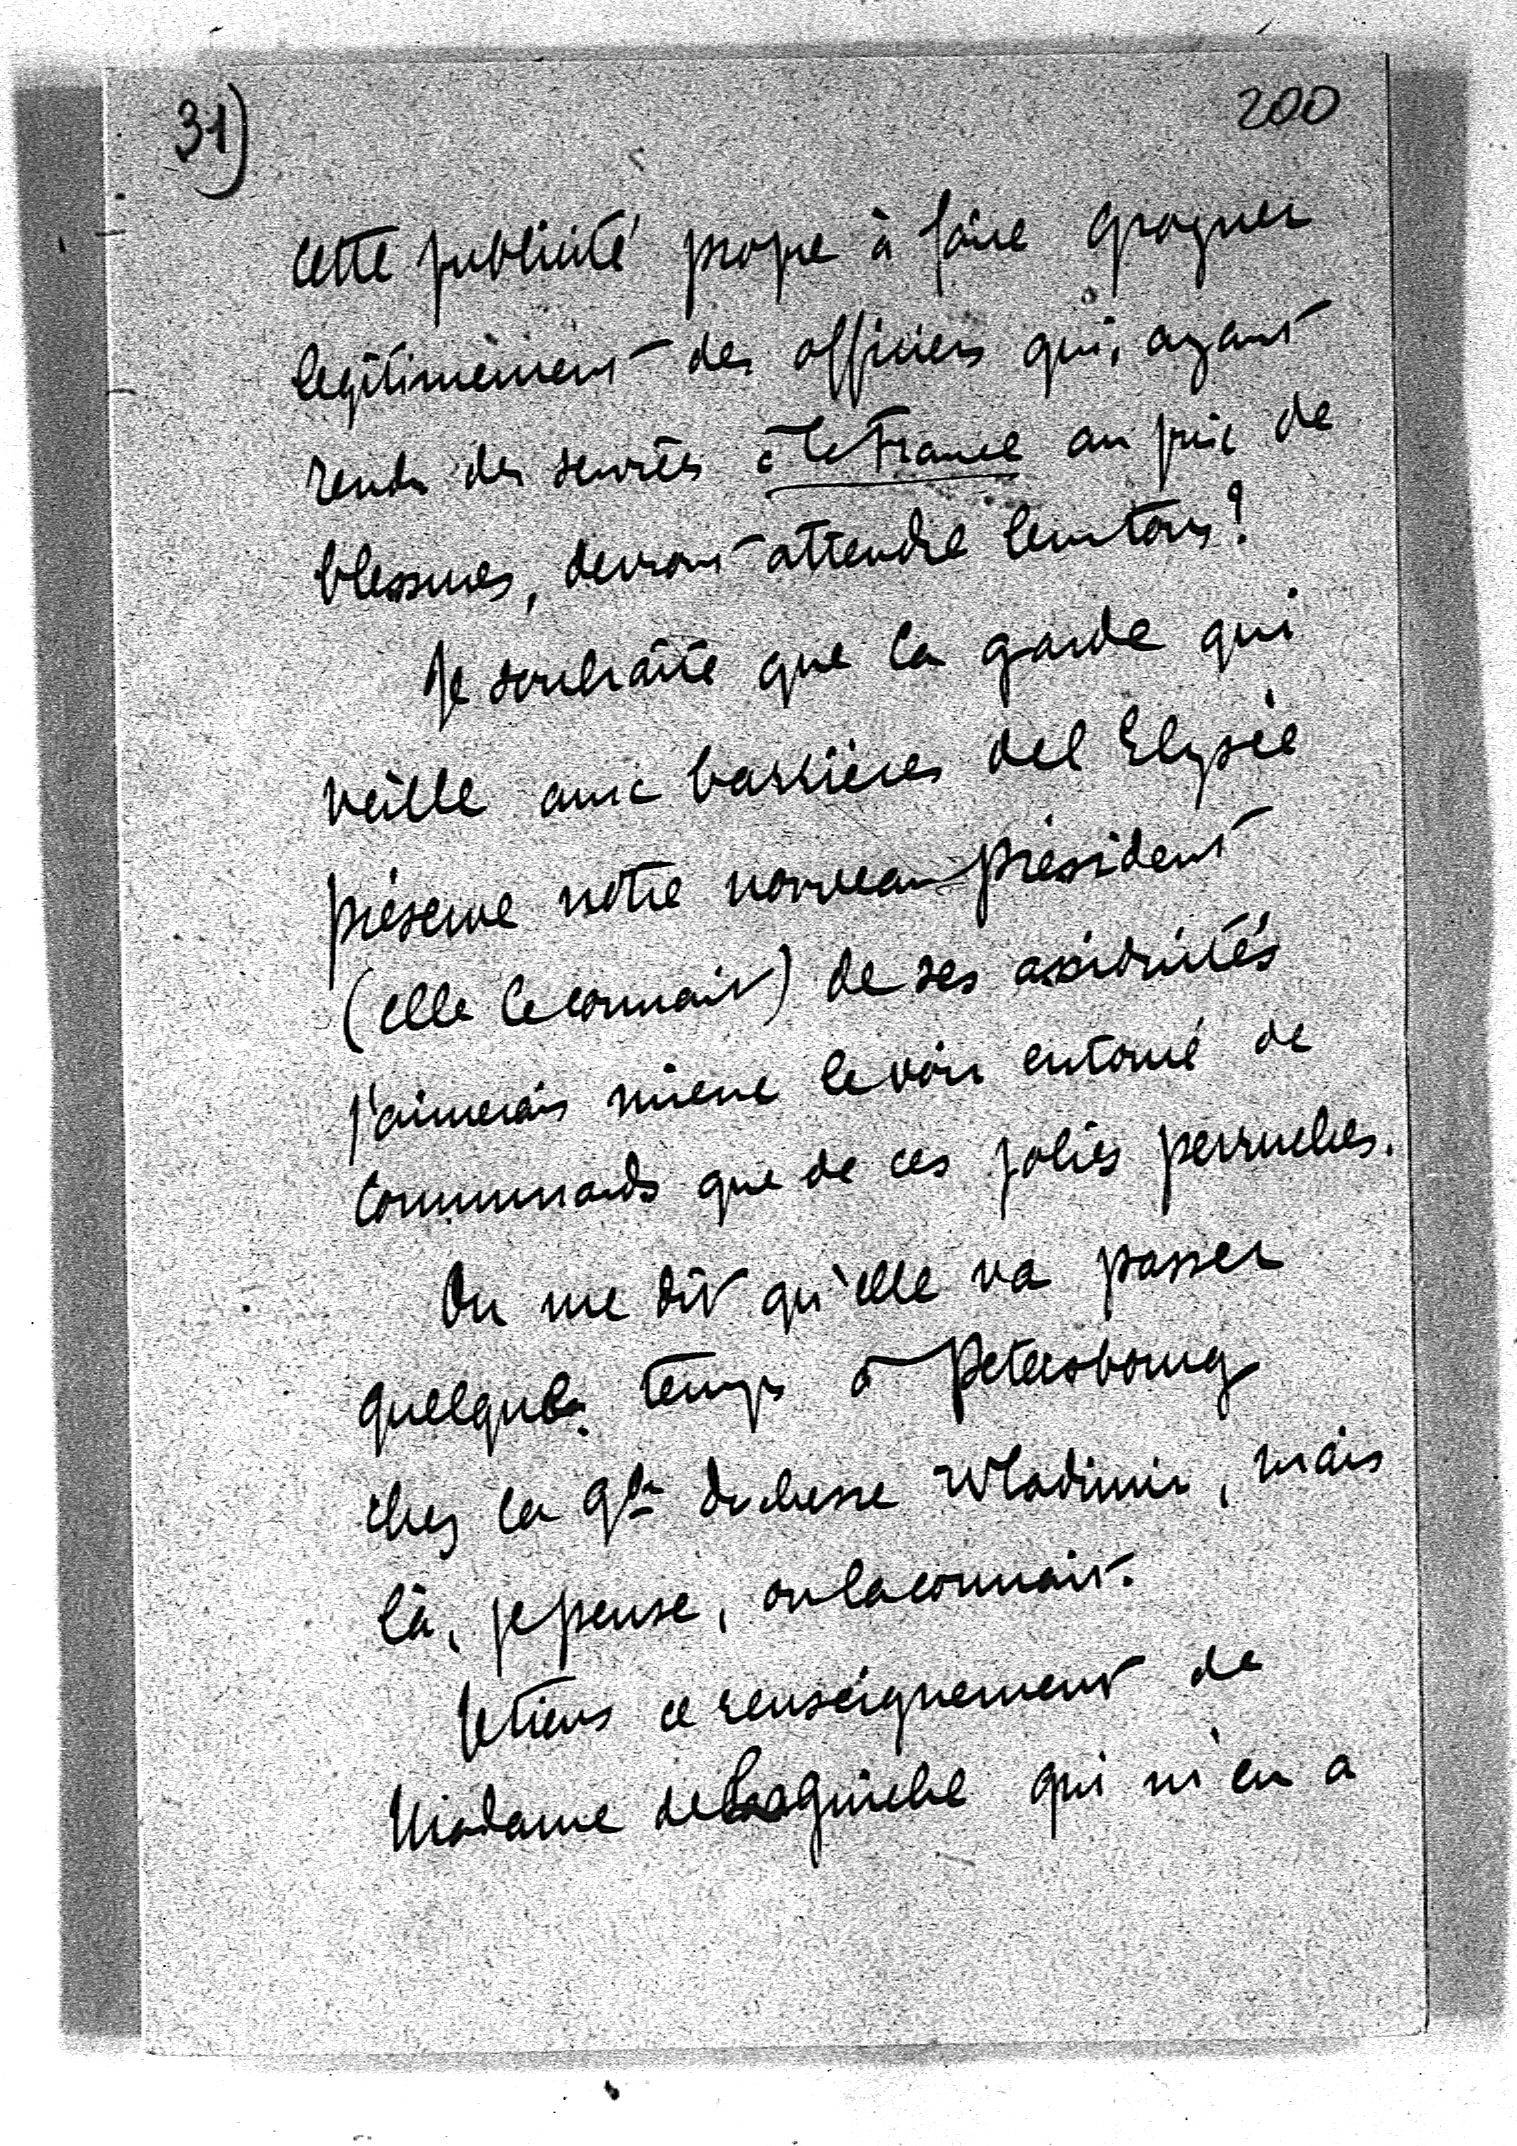 31)
200
cette publicité propre à faire grogner
légitimement des officiers qui, ayant
rendu des services à la France au prix de
blessures, devront attendre leur tour?
Je souhaite que la garde qui
veille aux barrières de l'Elysée
préserve notre nouveau président
(elle le connait) de ses assiduités
j'aimerais mieux le voir entouré de
communards que de ces jolies perruches.
On me dit qu'elle va passer
quelques temps à Petersbourg
chez la Gde duchesse Wladimir, mais
là, je pense, on la connait.
Je tiens ce renseignement de
Madame de Laguiche qui m'en a